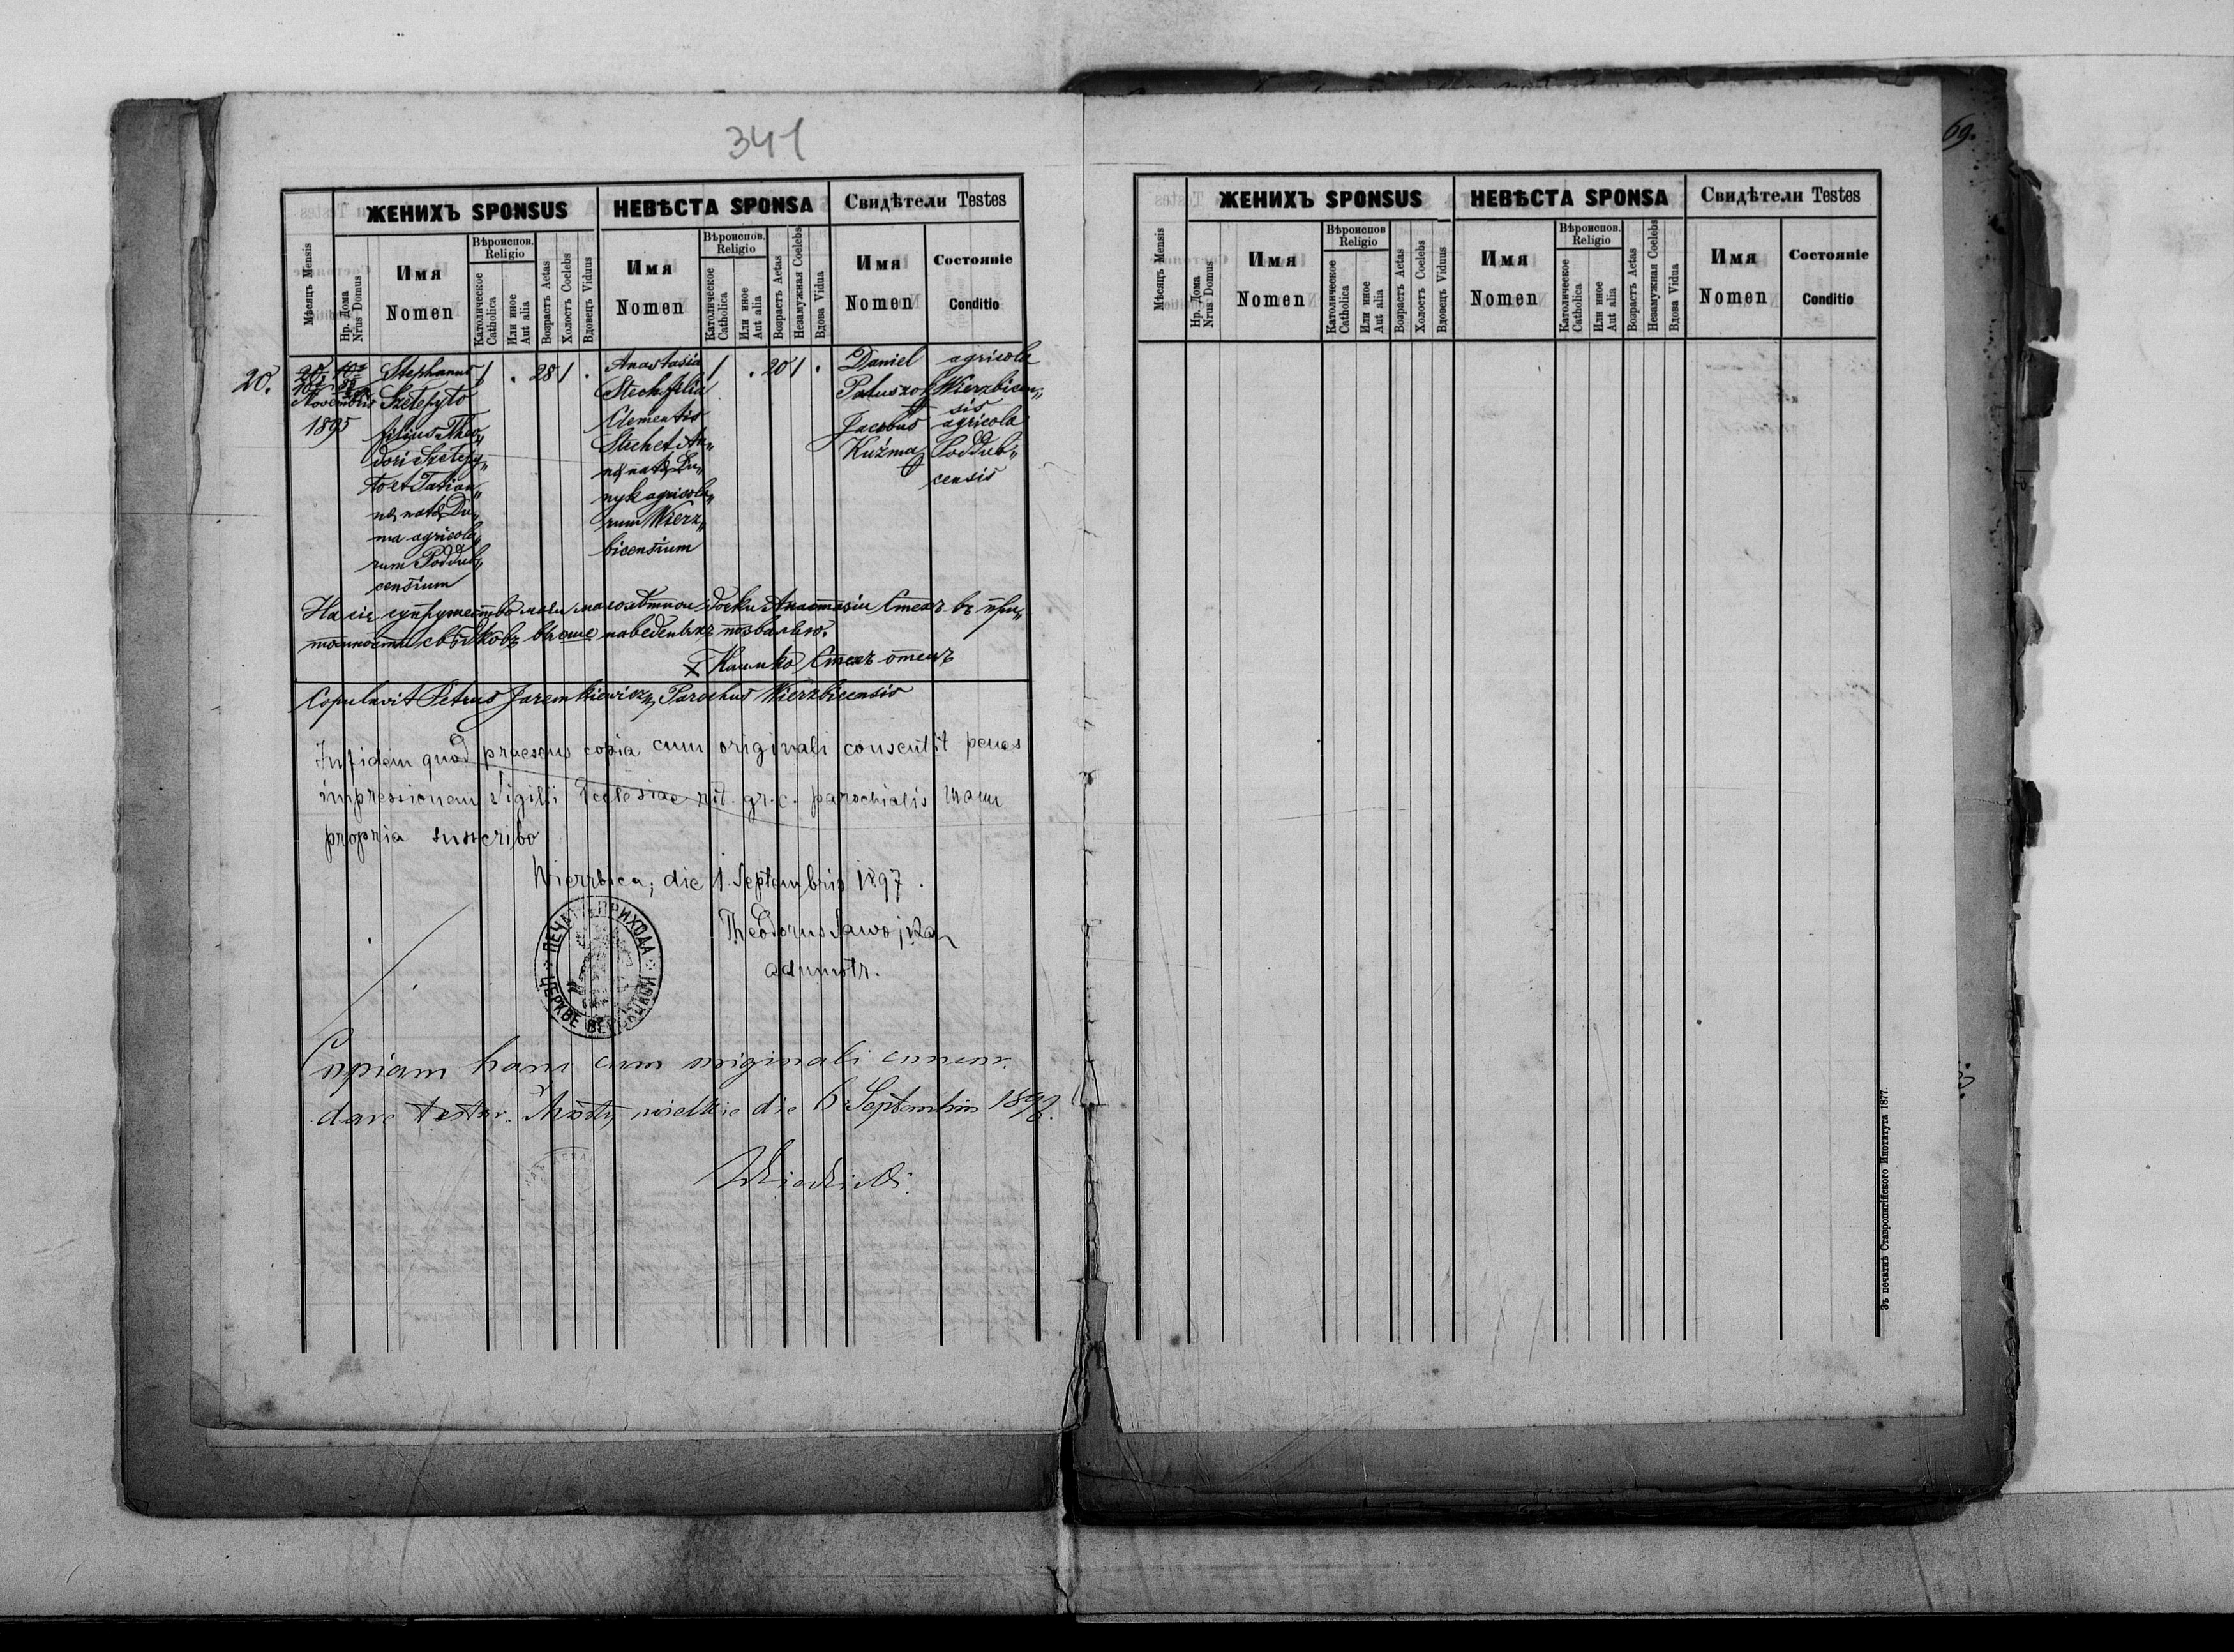 341
69.
ЖЕНИХЪ SPONSUS
НЕВѢСТА SPONSA
Свидѣтели Testes
Мѣсяцъ Mensis
Нр. Дома
Nrus Domus
Имя
Nomen
Вѣроиспов.
Religio
Католическое
Catholica
Или иное
Aut alia
Возрастъ Aetas
Холостъ Coelebs
Вдовецъ Viduus
Имя
Nomen
Вѣроиспов.
Religio
Католическое
Catholica
Или иное
Aut alia
Возрастъ Aetas
Незамужная Coelebs
Вдова Vidua
Имя
Nomen
Состояніе
Conditio
20.
Novembris
1895
Stephanus
Szetepyto
filius Theo„
dori Szetepy„
to et Tatian„
nę natę Du„
ma agricola„
rum Poddub„
censium
1 . 28 1 .
Anastasia
Stech filia
Clementis
Stech et An„
nę natę
nyk agricola„
rum Wierz„
bicensium
1 . 20 1 .
Daniel
Patuszo
Jacobus
Kuźma
agricola
Wierzbicen„
sis
agricola
Poddub„
censis
На сіе супружество моеи малолѣтнои дочки Анастазіи Стехъ въ при„
томности свѣдковъ выше наведеныхъ зозваляю.
X Климко Стехъ отецъ
Copulavit Petrus Jaremkiewicz, Parochus Wierzbicensis
In fidem quod praesens copia cum originali consentit penes
impressionem Sigilli Ecclesiae rit. gr. c. parochialis manu
propria suscribo
Wierzbica, die 1. Septembris 1897.
Theodorus Sawojka
admnstr.
ПЕЧАТЬ ПРИХОДА
ЦЕРКВЕ
Copiam hanc cum originali concor.
dare testor. Mosty wielkie die 6 Septembris 1898.
ЖЕНИХЪ SPONSUS
НЕВѢСТА SPONSA
Свидѣтели Testes
Мѣсяцъ Mensis
Нр. Дома
Nrus Domus
Имя
Nomen
Вѣроиспов
Religio
Католическое
Catholica
Или иное
Aut alia
Возрастъ Aetas
Холостъ Coelebs
Вдовецъ Viduus
Имя
Nomen
Вѣроиспов.
Religio
Католическое
Catholica
Или иное
Aut alia
Возрастъ Aetas
Незамужная Coelebs
Вдова Vidua
Имя
Nomen
Состояніе
Conditio
Зъ печатнѣ Ставропигійского Института 1877.